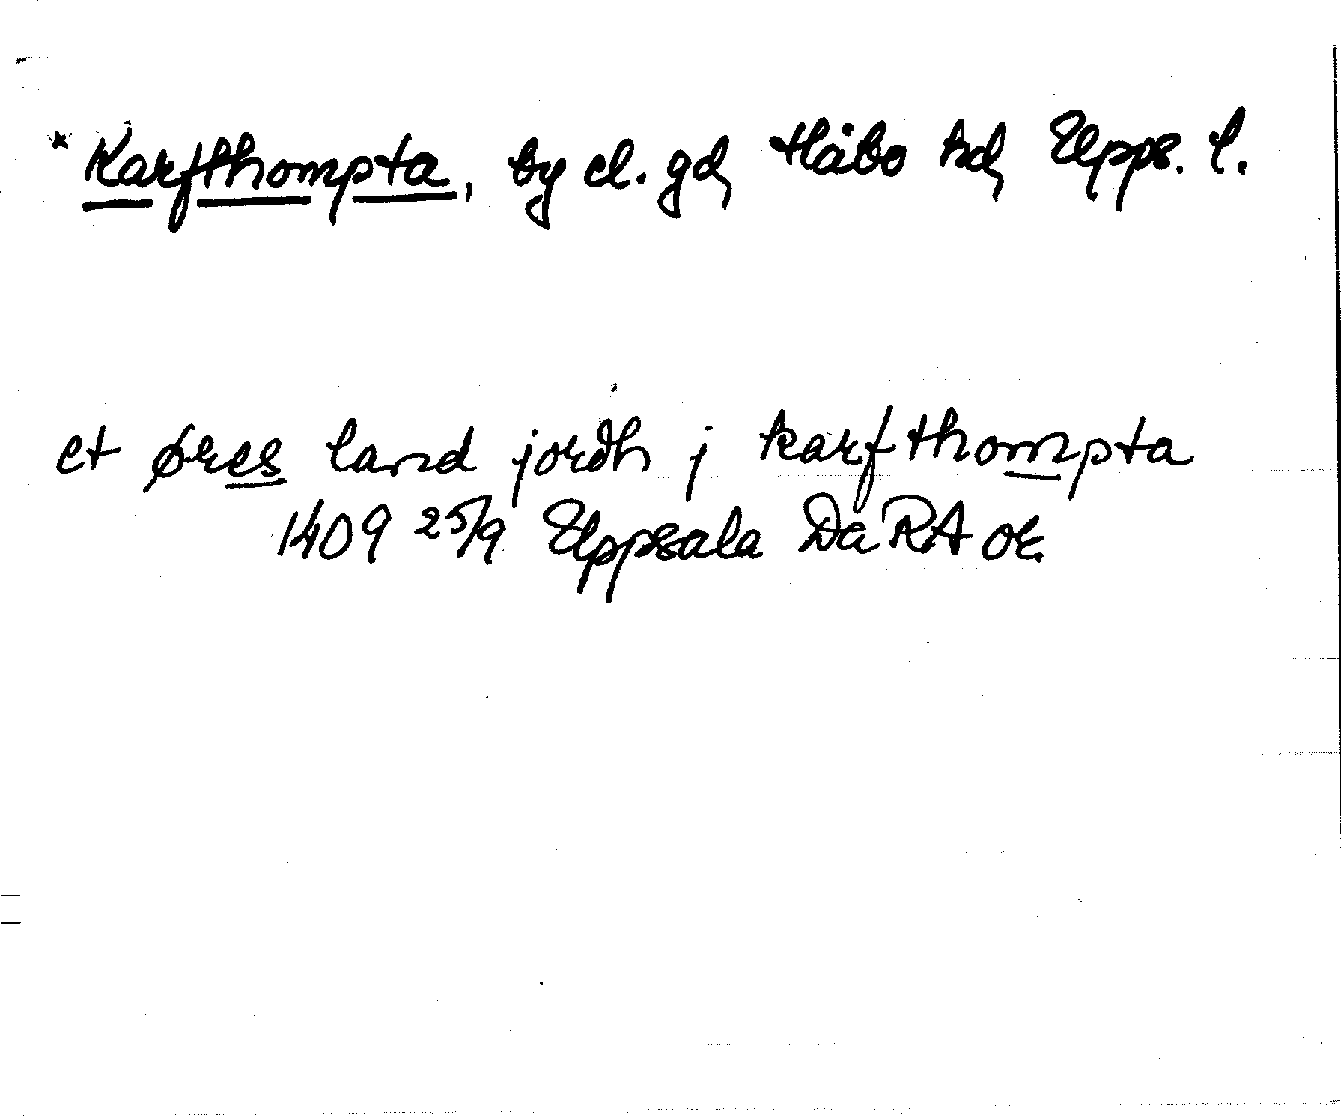 * Karfthompta, by el. gd, Håbo hd, Upps. l.
et øres land jordh j karfthompta
1409 25/9 Uppsala Da RA or.